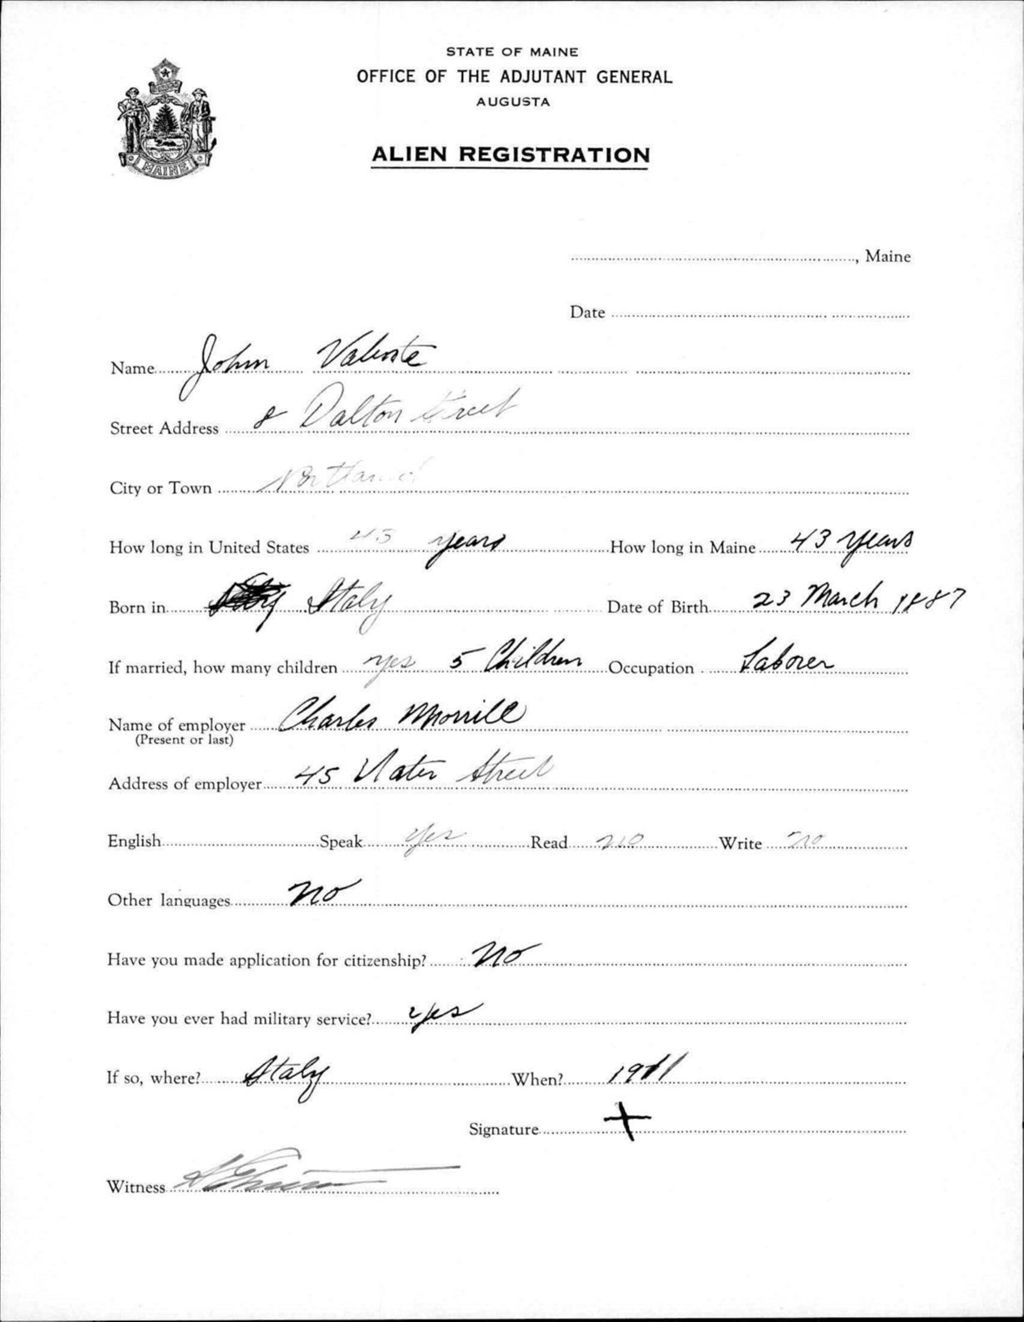 STATE OF MAINE
OFFICE OF THE ADJUTANT GENERAL
AUGUSTA
ALIEN REGISTRATION
MAINE
, Maine
Date
Name John Valeste
Street Address 8 Dalton Street
City or Town Portland
How long in United States 43 years How long in Maine 43 years
Born in Italy Date of Birth 23 March 1887
If married, how many children yes 5 Children Occupation Laborer
Name of employer Charles Morrill
(Present or last)
Address of employer 45 Water Street
English Speak Yes Read no Write no
Other languages no
Have you made application for citizenship? No
Have you ever had military service? yes
If so, where? Italy When? 1911
Signature X
Witness